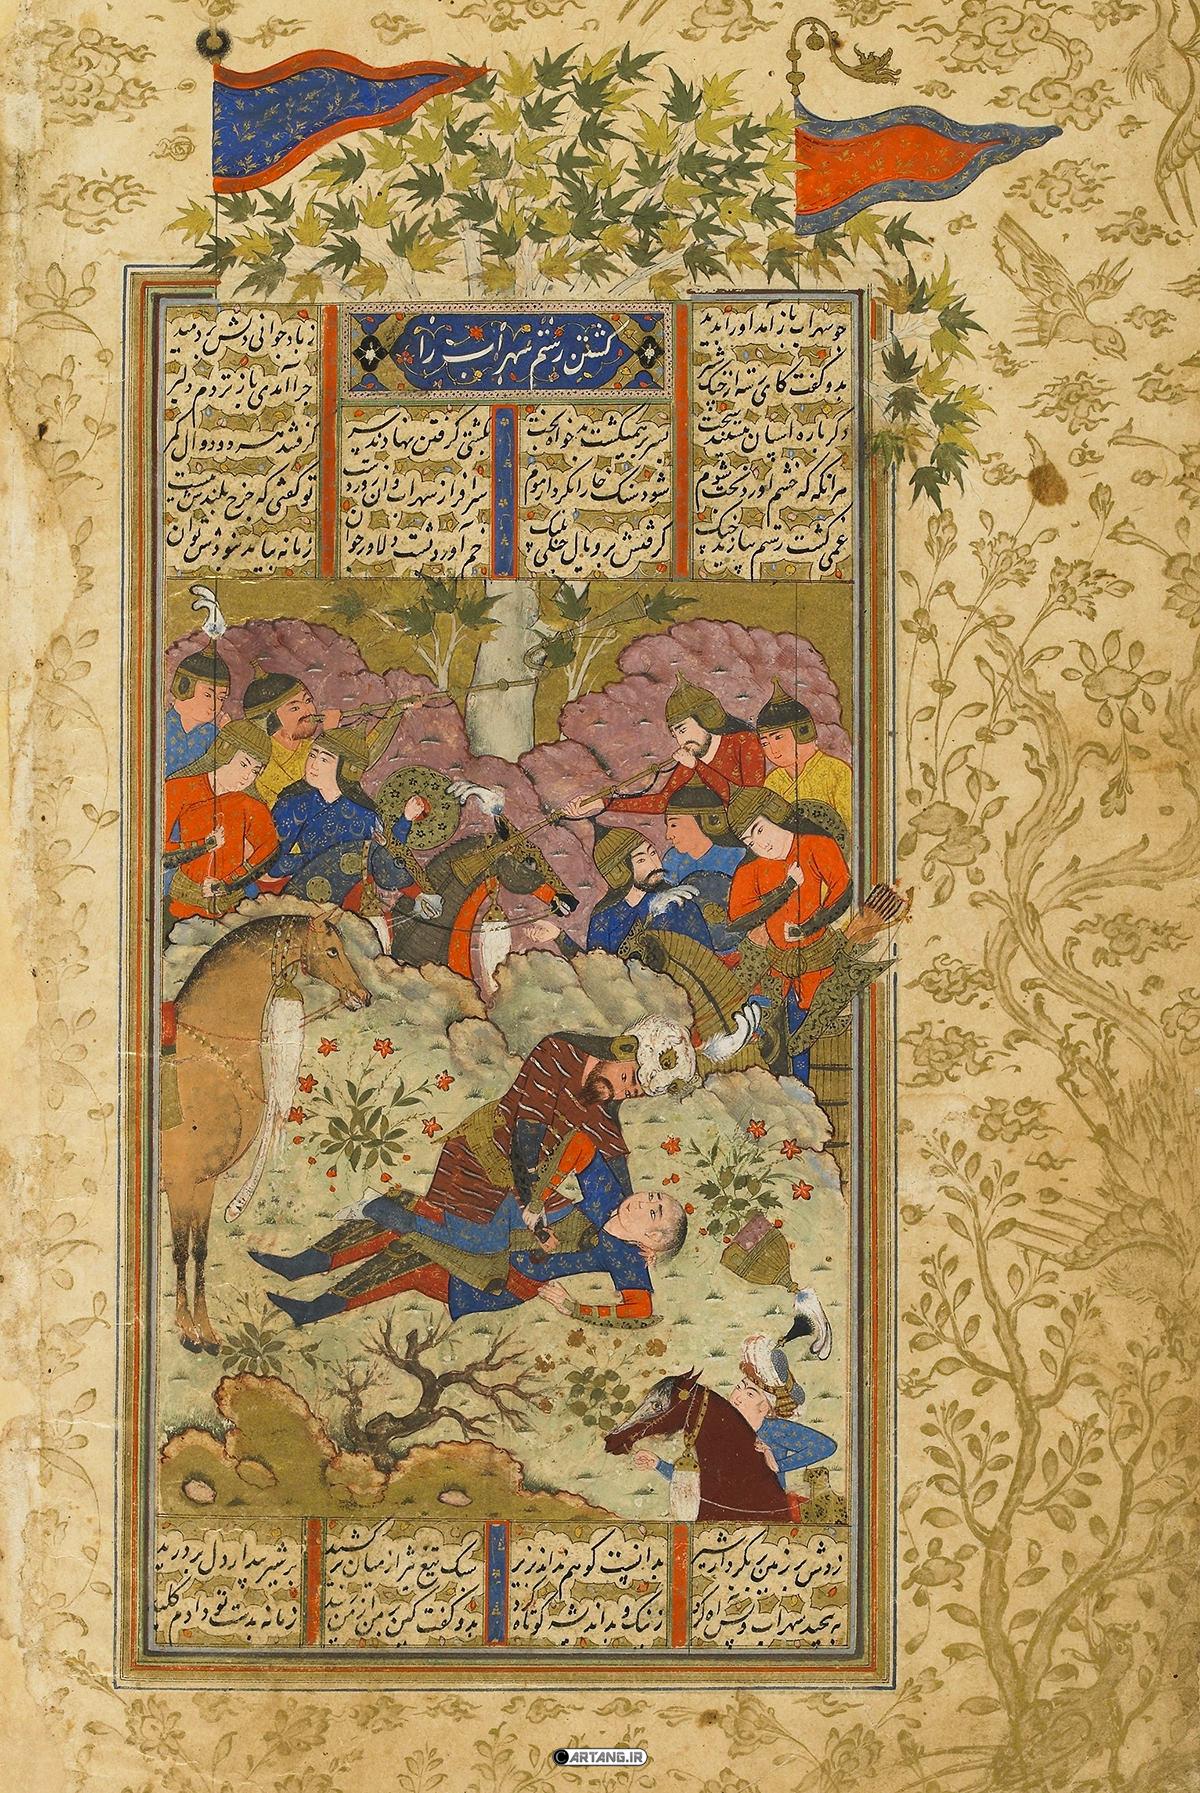 کشتن رستم سهراب را
چو سهراب باز آمد او را بدید
ز باد جوانی دلش بردمید
بدو گفت کای رسته از چنگ شیر
چرا آمدی باز نزدم دلیر
دگر باره اسپان ببستند سخت
بسر بر همیگشت بدخواه بخت
بکشتی گرفتن نهادند سر
گرفتند هر دو دوال کمر
هر آنگه که خشم آورد بخت شوم
شود سنگ خارا بکردار موم
سرافراز سهراب و آن زور دست
تو گفتی که چرخ بلندش ببست
غمی گشت رستم بیازید چنگ
گرفتش بر و یال جنگی پلنگ
خم آورد پشت دلاور جوان
زمانه بیامد نبودش توان
زدش بر زمین بر بکردار شیر
بدانست کو هم نماند بزیر
سبک تیغ تیز از میان بر کشید
بر شیر بیدار دل بر درید
به پیچید سهراب و پس آه کرد
ز نیک و بد اندیشه کوتاه کرد
بدو گفت کین بر من از من رسید
زمانه بدست تو دادم کلید
CARTANG.IR